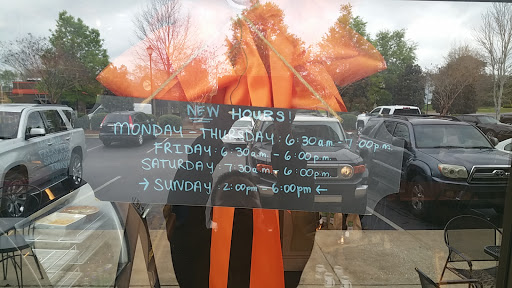 NEW HOURS!
MONDAY - THURSDAY: 6:30am - 7:00p.m.
FRIDAY: 6:30a.m. - 6:00p.m.
SATURDAY: 7:30a.m. - 6:00p.m.
→ SUNDAY: 2:00pm - 6:00pm ←